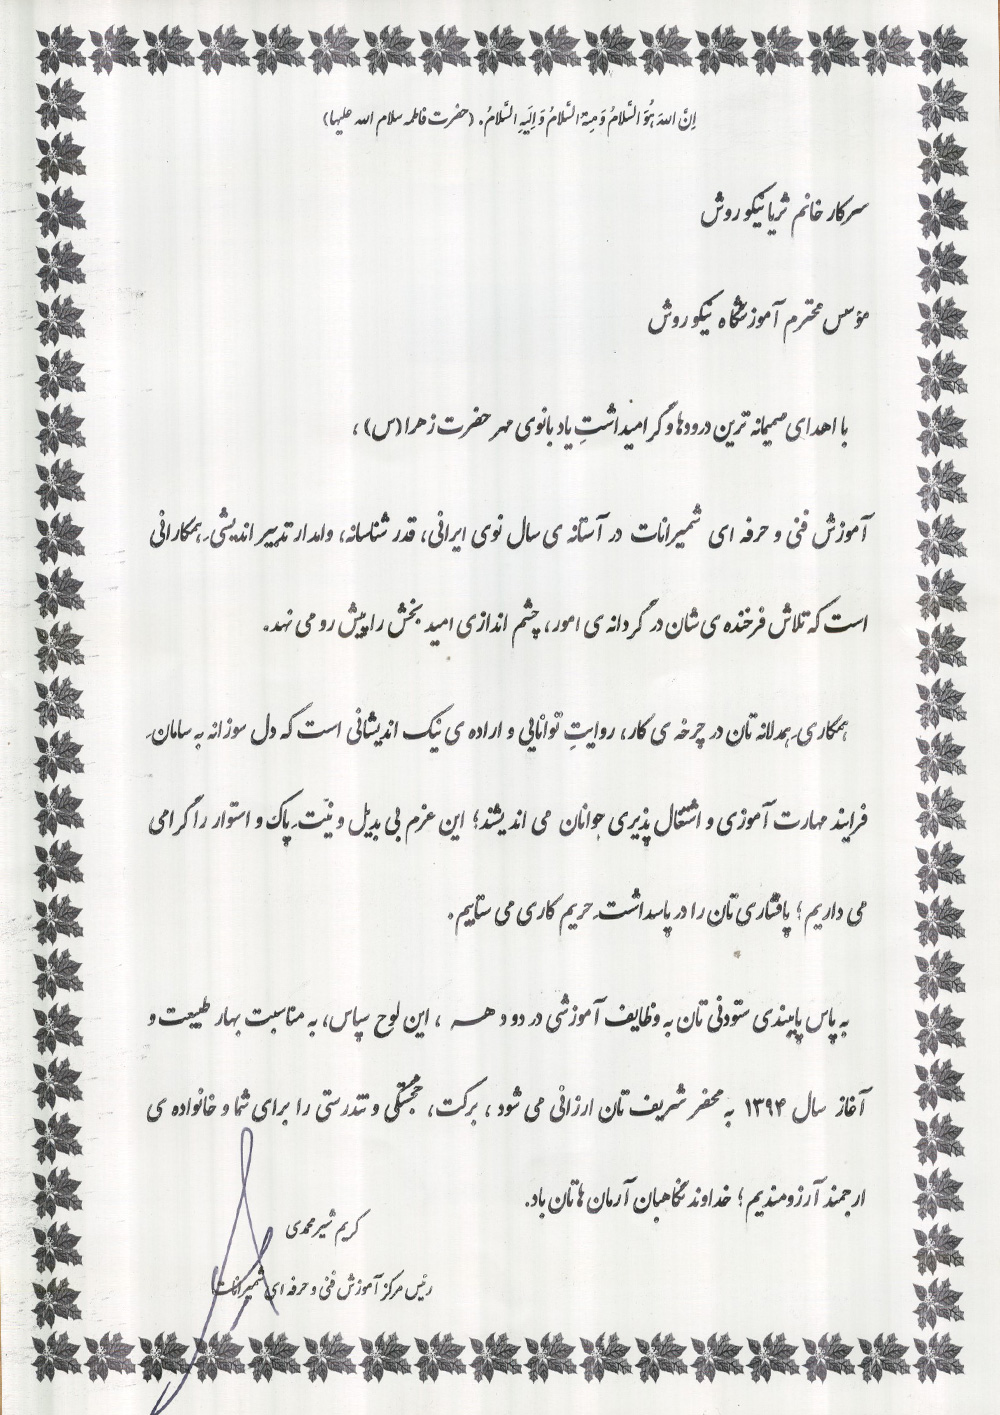 اِنَّ اللهَ هُوَ السَّلامُ وَ مِنهُ السَّلامُ وَ اِلَیهِ السَّلامُ. (حضرت فاطمه سلام الله علیها)
سرکار خانم ثریا نیکو روش
مؤسس محترم آموزشگاه نیکو روش
با اهدای صمیمانه ترین درودها و گرامیداشتِ یاد بانوی مهر حضرت زهرا (س) ،
آموزش فنی و حرفه ای شمیرانات در آستانه ی سال نوی ایرانی، قدر شناسانه، وامدار تدبیر اندیشیِ همکارانی
است که تلاش فرخنده ی شان در گردانه ی امور، چشم اندازی امید بخش را پیش رو می نهد.
همکاریِ همدلانه تان در چرخه ی کار، روایتِ توانایی و اراده ی نیک اندیشانی است که دل سوزانه به سامانِ
فرایند مهارت آموزی و اشتغال پذیری جوانان می اندیشند؛ این عزم بی بدیل و نیّتِ پاک و استوار را گرامی
می داریم ؛ پافشاری تان را در پاسداشتِ حریم کاری می ستاییم.
به پاس پایبندی ستودنی تان به وظایف آموزشی در دو دهـــه ، این لوح سپاس، به مناسبت بهار طبیعت و
آغاز سال ۱۳۹۴ به محضر شریف تان ارزانی می شود ، برکت، خجستگی و تندرستی را برای شما و خانواده ی
ارجمند آرزومندیم ؛ خداوند نگاهبان آرمان هاتان باد.
کریم شیرمحمدی
رئیس مرکز آموزش فنی و حرفه ای شمیرانات